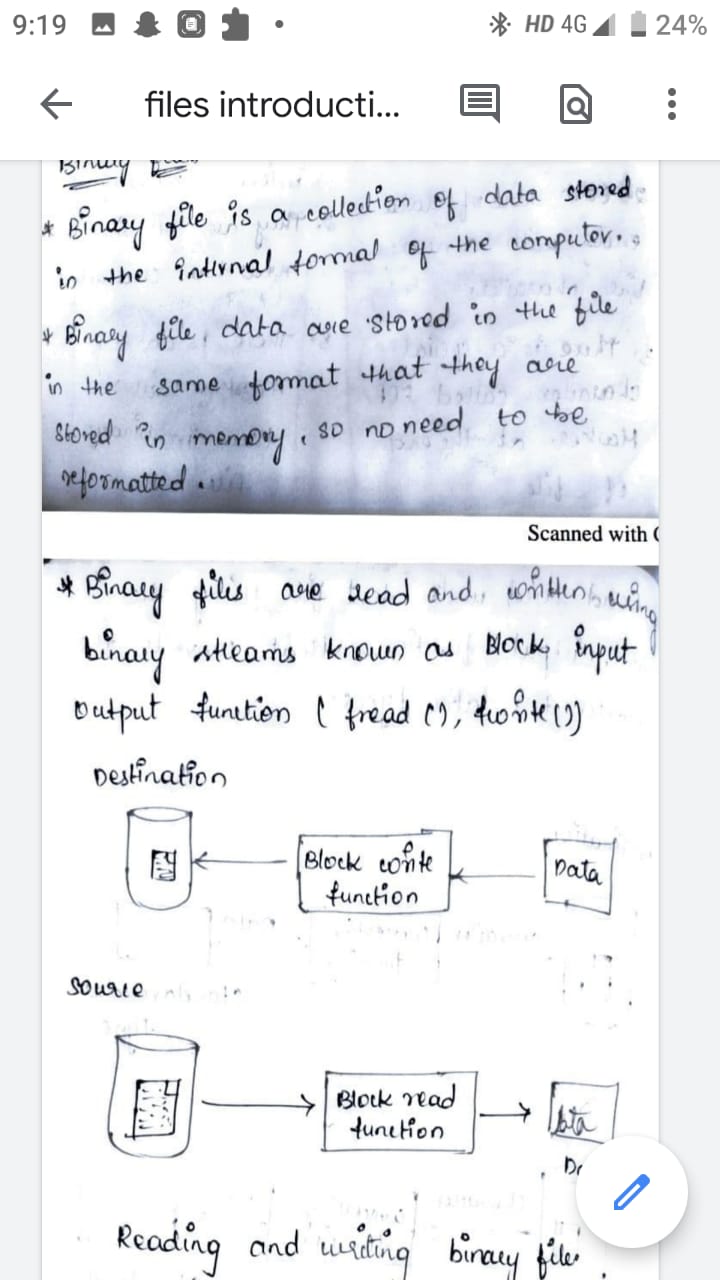 9:19 HD 4G 24%
files introducti...
Binary
* Binary file is a collection of data stored
in the internal format of the computer.
* Binary file, data are stored in the file
in the same format that they are
stored in memory, so no need to be
reformatted.
Scanned with
* Binary files are read and, written using
binary streams known as Block input
output function ( fread (), fwrite ())
Destination
Block write
function
Data
Source
Block read
function
Reading and writing binary file